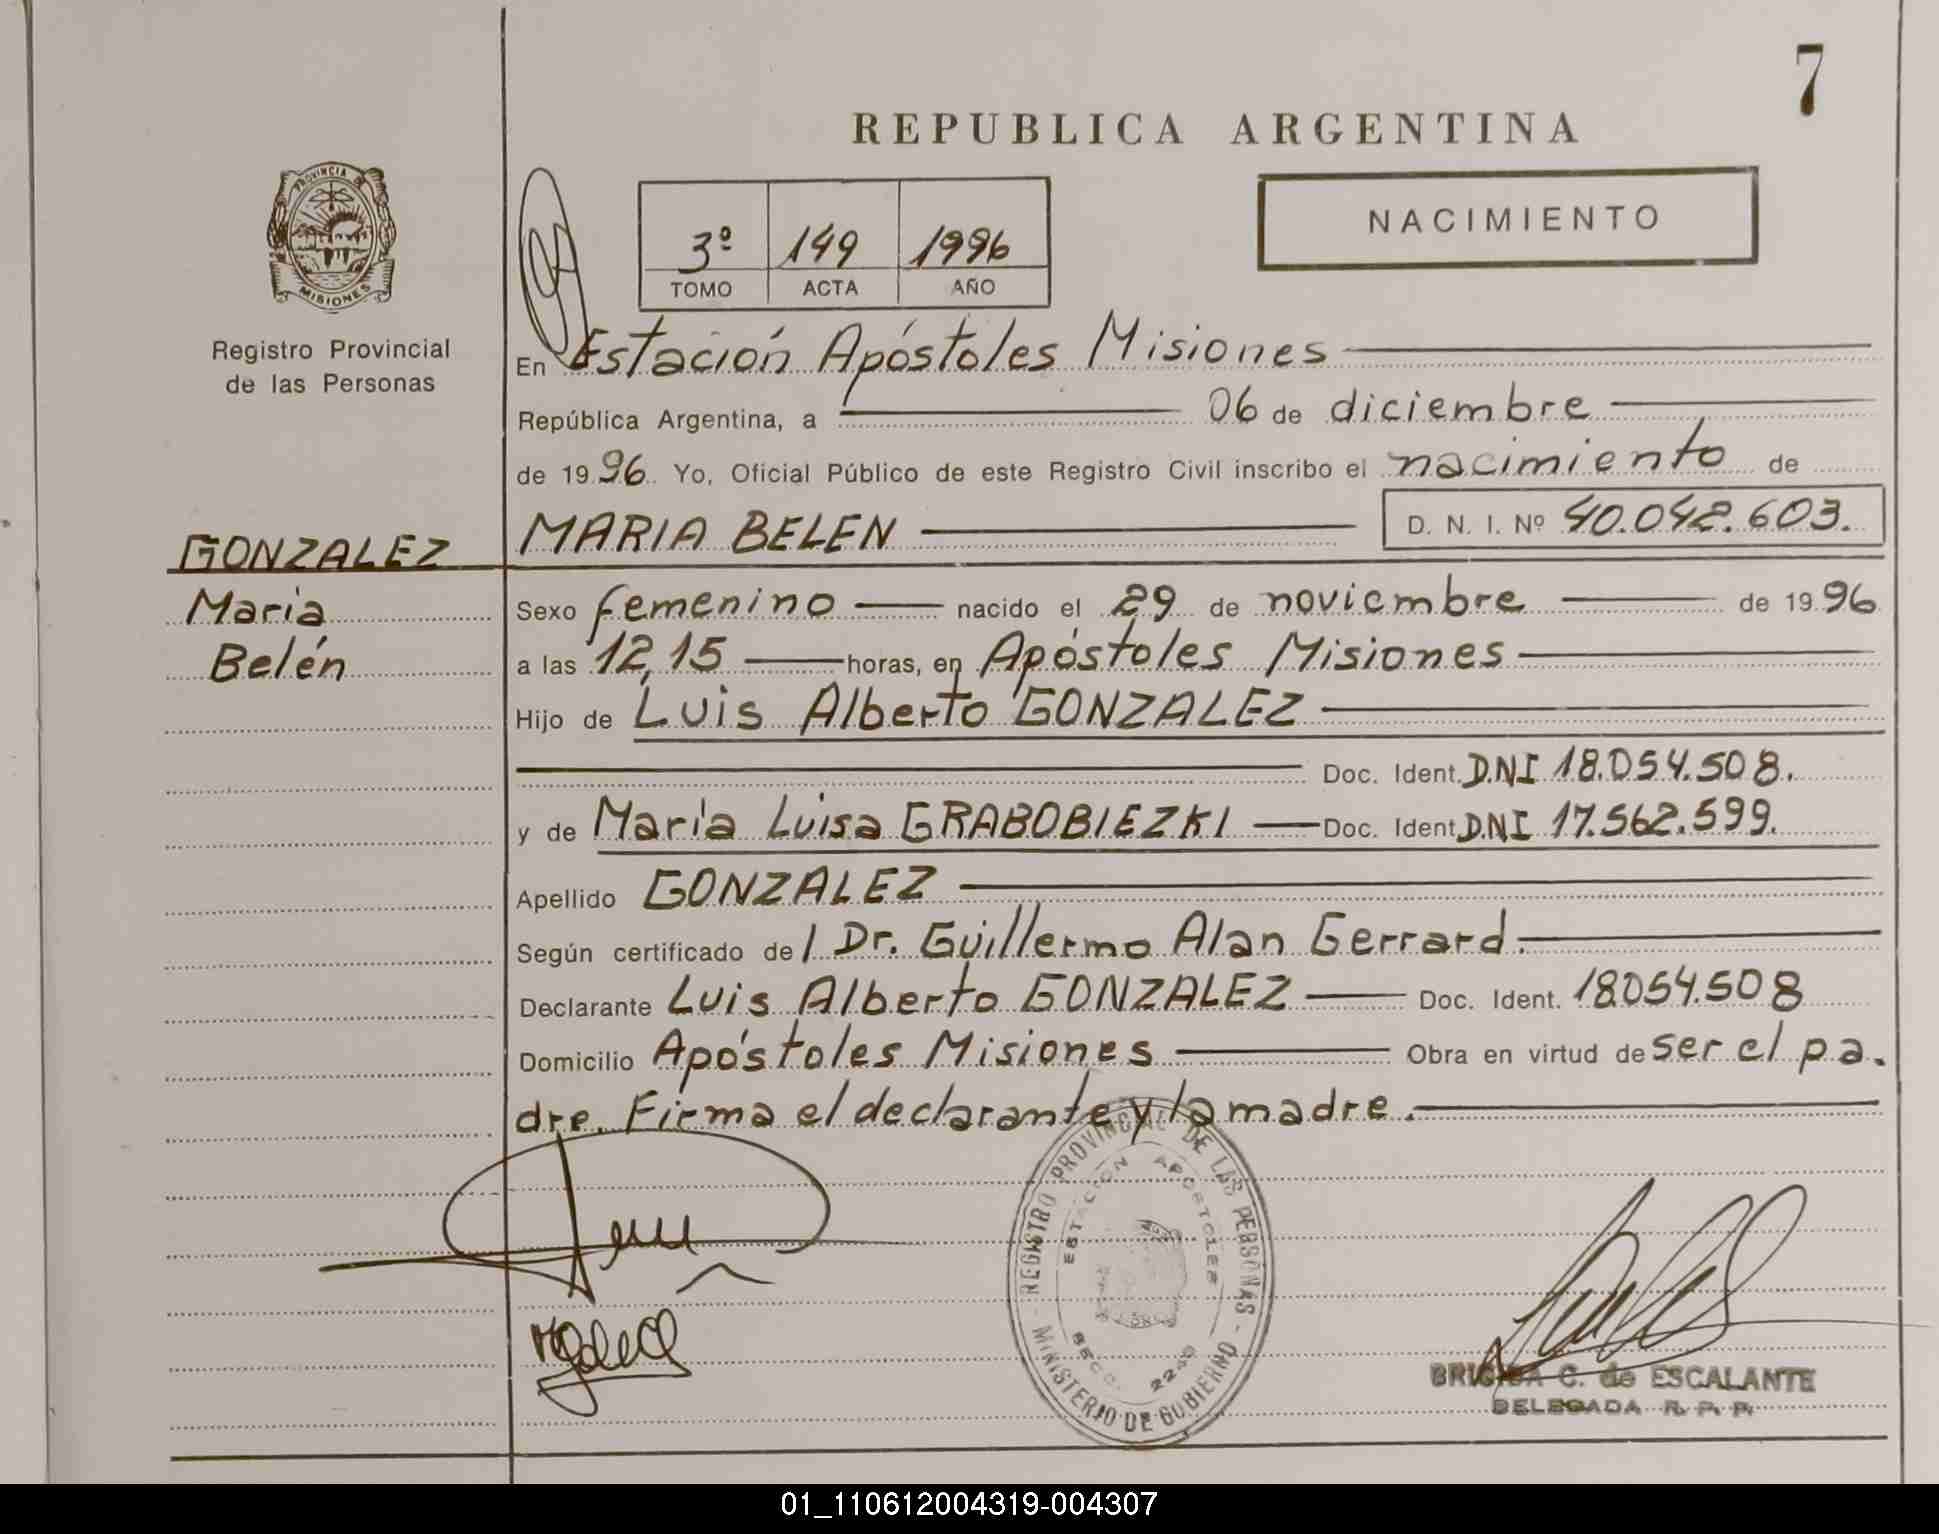 7
REPUBLICA ARGENTINA
PROVINCIA DE
MISIONES
Registro Provincial
de las Personas
3º 149 1996
TOMO ACTA AÑO
NACIMIENTO
En Estación Apóstoles Misiones
República Argentina, a 06 de diciembre
de 1996. Yo, Oficial Público de este Registro Civil inscribo el nacimiento de
GONZALEZ
Maria
Belén
MARIA BELEN D. N. I. Nº 40.042.603.
Sexo femenino nacido el 29 de noviembre de 1996
a las 12,15 horas, en Apóstoles Misiones
Hijo de Luis Alberto GONZALEZ
Doc. Ident. D.NI 18.054.508.
y de María Luisa GRABOBIEZKI Doc. Ident. D.NI 17.562.599.
Apellido GONZALEZ
Según certificado del Dr. Guillermo Alan Gerrard.
Declarante Luis Alberto GONZALEZ Doc. Ident. 18.054.508
Domicilio Apóstoles Misiones Obra en virtud de ser el pa-
dre. Firma el declarante y la madre.
REGISTRO PROVINCIAL DE LAS PERSONAS - MINISTERIO DE GOBIERNO -
ESTACION APOSTOLES
SECC. 2240
BRIGIDA C. de ESCALANTE
DELEGADA R. P. P.
01_110612004319-004307